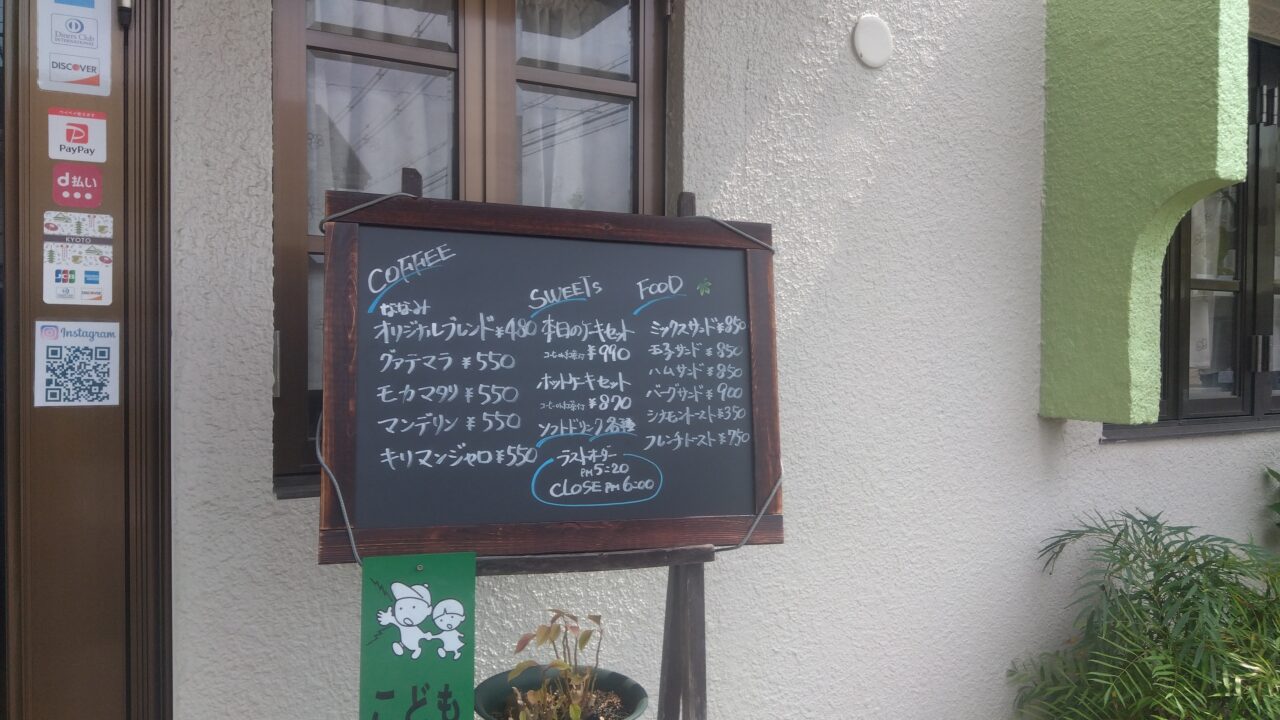 Diners Club
INTERNATIONAL
DISCOVER
PayPay
d払い
KYOTO
JCB
DISCOVER
Instagram
COFFEE
ななみ
オリジナルブレンド ¥480
グァテマラ ¥550
モカマタリ ¥550
マンデリン ¥550
キリマンジャロ ¥550
SWEETS
本日のケーキセット
¥990
ホットケーキセット
¥870
ソフトドリンク各種
ラストオーダー
PM 5:20
CLOSE PM 6:00
FOOD
ミックスサンド ¥850
玉子サンド ¥850
ハムサンド ¥850
バーグサンド ¥900
シナモントースト ¥350
フレンチトースト ¥750
こども